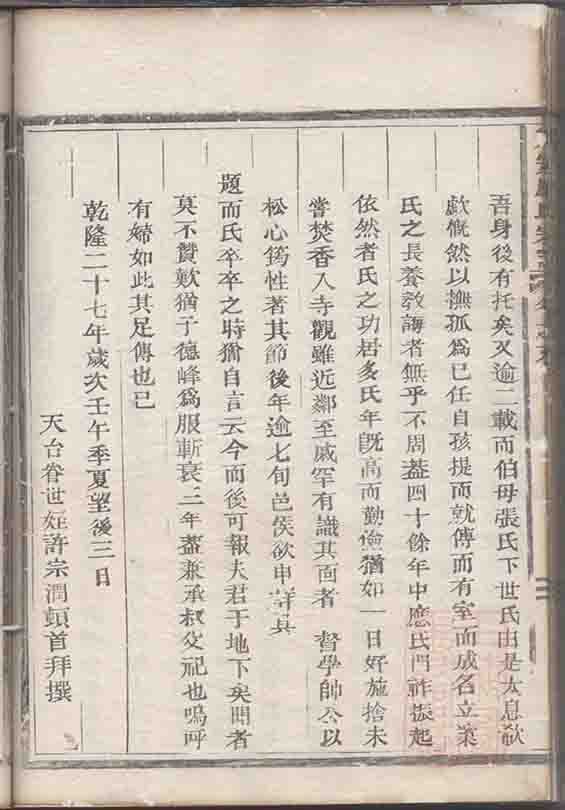 吾身後有托矣又逾二載而伯母張氏下世氏由是太息欷
歔慨然以撫孤為已任自孩提而就傅而有室而成名立業
氏之長養敎誨者無乎不周葢四十餘年中應氏門祚振起
依然者氏之功居多氏年旣高而勤儉猶如一日好施捨未
嘗焚香入寺觀雖近鄰至戚罕有識其面者 督學帥公以
松心筠性著其節後年逾七旬邑侯欲申詳其
題而氏卒卒之時猶自言云今而後可報夫君于地下矣聞者
莫不贊歎猶子德峰爲服斬衰三年葢兼承叔父祀也嗚呼
有婦如此其足傳也已
乾隆二十七年歲次壬午季夏望後三日
天台眷世姪許宗潤頓首拜撰